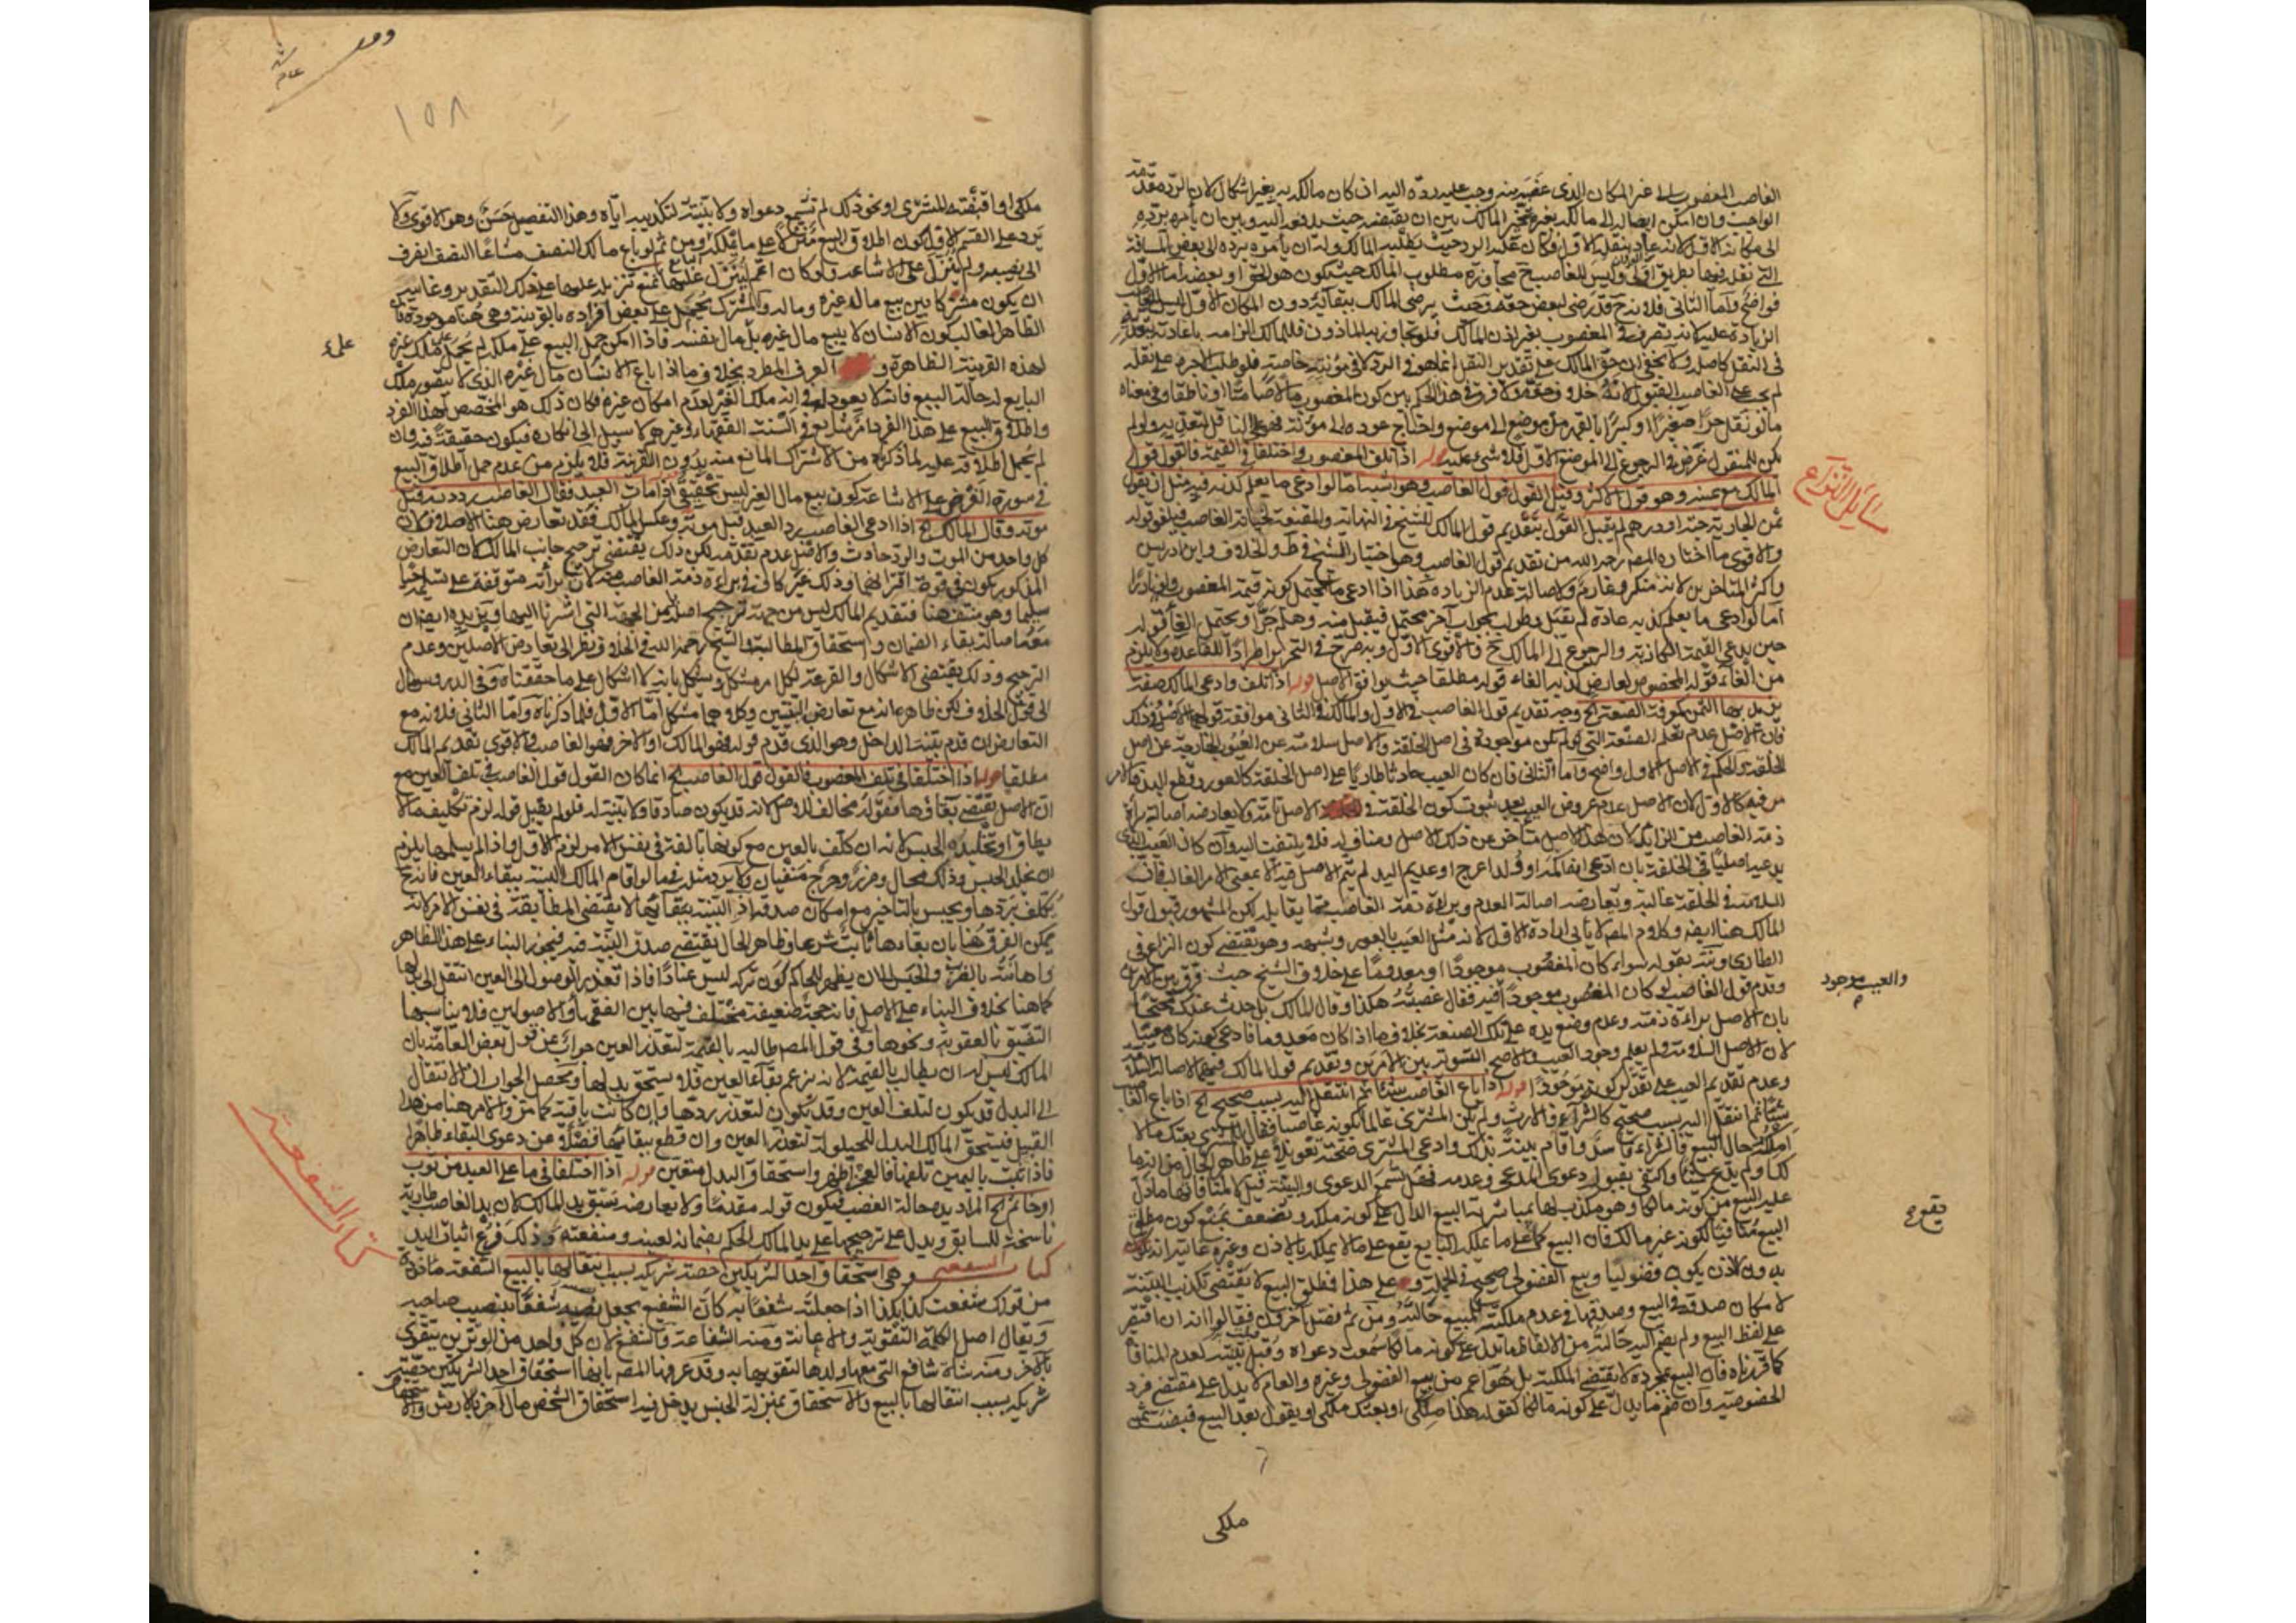 الغاصب المغصوب الى غير المكان الذى غصبه منه وجب عليه رده اليه ان كان مالكه به بغير اشكال لان الرد مقدمة
الواجب وان امكن ايصاله الى مالكه بغيره تخير المالك بين ان يقتضيه حيث يدفعه اليه وبين ان يأمره برده
الى مكانه الاول لانه عاد بنقله الاول فكان عليه الرد حيث يطلبه المالك وله ان يأمره برده الى بعض المسافة
التى نقله فيها بطريق اولى وليس للغاصب ح مجاوزة مطلوب المالك حيث يكون هو الحق او بعضه اما الاول
فواضح واما الثانى فلانه ح قد رضى ببعض حقه وحيث يرضى المالك ببقائه دون المكان الاول ليس للغاصب
الزيادة عليه لانه تصرف فى المغصوب بغير اذن المالك فلو تجاوز به الماذون فللمالك الزامه باعادته
فى النقل كاصله ولا يخفى ان حق المالك على تقدير النقل انما هو فى الرد لا فى مؤنته خاصة فلو طلب الاجرة على نقله
لم يجب على الغاصب القبول لانه خلاف حقه ولا فرق فى هذا الحكم بين كون المغصوب مالا صامتا او ناطقا وفى معناه
ما لو نقل حرا صغيرا او كبيرا بالقهر من موضع الى موضع واحتاج عوده الى مؤنة فهى على الناقل لتعديه ولو لم
يكن للمنقول غرض فى الرجوع الى الموضع الاول فلا شىء عليه قوله اذا تلف المغصوب واختلفا فى القيمة فالقول قول
المالك مع يمينه وهو قول الاكثر وقيل القول قول الغاصب وهو اشبه اما لو ادعى ما يعلم كذبه فيه مثل ان يقول
ثمن الجارية حبة او درهم لم يقبل القول بتقديم قول المالك للشيخ فى النهاية والمقنعة لخيانة الغاصب فيلغو قوله
والاقوى ما اختاره المصم رحمه الله من تقديم قول الغاصب وهو اختيار الشيخ فى ط والخلاف وابن ادريس
واكثر المتاخرين لانه منكر وغارم ولاصالة عدم الزيادة هذا اذا ادعى ما يحتمل كونه قيمة المغصوب ولو نادرا
اما لو ادعى ما يعلم كذبه عادة لم يقبل وطولب بجواب آخر محتمل فيقبل منه وهلم جرا ويحتمل الغاء قوله
حين يدعى القيمة الكاذبة والرجوع الى المالك ح والاقوى الاول وبه صرح فى التحرير اطرادا للقاعدة ولا يلزم
من الغاء قوله المخصوص لعارض كذبه الغاء قوله مطلقا حيث يوافق الاصل قوله اذا تلف وادعى المالك صفة
يزيد بها الثمن كمعرفة الصنعة الخ وجه تقديم قول الغاصب فى الاول والمالك فى الثانى موافقة قولهما الاصل وذلك
فان الاصل عدم تعلم الصنعة التى لم تكن موجودة فى اصل الخلقة والاصل سلامته عن العيوب الخارجة عن اصل
الخلقة والحكم فى الاصل الاول واضح واما الثانى فان كان العيب حادثا طاريا على اصل الخلقة كالعور وقطع اليد فالامر
فيه كالاول لان الاصل عدم عروض العيب بعد ثبوت كون الخلقة فى الاصل تامة ولا يعارضه اصالة براءة
ذمة الغاصب من الزايد لان هذا الاصل متأخر عن ذلك الاصل ومناف له فلا يلتفت اليه وان كان العيب الذى
يدعيه اصليا فى الخلقة بان ادعى انه اكمه او ولد اعرج او عديم اليد لم يتم الاصل فيه الا بمعنى الامر الغالب فان
السلامة فى الخلقة غالبة ويعارضه اصالة العدم وبراءة ذمة الغاصب مما يقابله لكن المشهور قبول قول
المالك هنا ايضه وكلام المصم لا يأبى ارادة الاول لانه مثل العيب بالعور وشبهه وهو يقتضى كون النزاع فى
الطارى ونبه بقوله سواء كان المغصوب موجودا او معدوما على خلاف الشيخ حيث فرق بين الامرين
وقدم قول الغاصب لو كان المغصوب موجودا فيه فقال غصبته هكذا وقال المالك بل حدث عندك محتجا
بان الاصل براءة ذمته وعدم وضع يده على تلك الصنعة بخلاف ما اذا كان معدوما فادعى كونه كان معيبا
لان الاصل السلامة ولم يعلم وجود العيب والاصح التسوية بين الامرين وتقديم قول المالك فيهما لاصالة السلامة
وعدم تقديم العيب على تقدير كونه موجودا قوله اذا باع الغاصب شيئا ثم انتقل اليه بسبب صحيح الخ اذا باع الغاصب
شيئا ثم انتقل اليه بسبب صحيح كالشراء والارث ولم يكن المشترى عالما بكونه غاصبا فقال للمشترى بعتك مالا
املكه حال البيع فالشراء فاسد واقام بينة بذلك وادعى المشترى صحته تعويلا على ظاهر الحال من انه ما
عليه البيع من كونه مالكا وهو مكذب لها بمباشرته البيع الدال على كونه ملكه ويضعف بمنع كون مطلق
البيع منافيا لكونه غير مالك فان البيع كما يقع على ما يملكه البايع يقع على ما لا يملكه بالاذن وغيره غايته انه
بدون الاذن يكون فضوليا وبيع الفضولى صحيح فى الجملة وعلى هذا فمطلق البيع لا يقتضى تكذيب البينة
لامكان صدقه فى البيع وصدقها فى عدم ملكيته للمبيع حالته ومن ثم فصل آخرون فقالوا انه ان اقتصر
على لفظ البيع ولم يضم اليه حالته من الالفاظ ما يدل على كونه مالكا سمعت دعواه وقبل بينته لعدم المنافاة
كما قررناه فان البيع بمجرده لا يقتضى الملكية بل هو اعم من بيع الفضولى وغيره والعام لا يدل على مقتضى فرد
الخصوصية وان ضم ما يدل على كونه مالكا كقوله هذا ملكى او بعتك ملكى او يقول بعد البيع قبضت ثمن
مسايل التنازع
والعيب موجود
ملكى
١٥٨
ملكى او اقبضته للمشترى او نحو ذلك لم تسمع دعواه ولا بينته لتكذيبه اياه وهذا التفصيل حسن وهو الاقوى ولا
يرد على القسم الاول كون اطلاق البيع منزلا على ما يملكه ومن ثم لو باع مالك النصف مشاعا النصف انصرف
الى نصيبه ولم ينزل على الاشاعة ولو كان اعم لنزل عليها لمنع تنزيله عليها على ذلك التقدير وغايته
ان يكون مشتركا بين بيع ماله وغيره والمشترك يحمل على بعض افراده بالقرينة وهى هنا موجودة فان
الظاهر الغالب كون الانسان لا يبيع مال غيره بل مال نفسه فاذا امكن حمل البيع على ملكه لم يحمل على ملك غيره
لهذه القرينة الظاهرة و العرف المطرد بخلاف ما اذا باع الانسان مال غيره الذى لا يتصور ملك
البايع له حالة البيع فانه لا يعود له فى انه ملك الغير لعدم امكان غيره فكان ذلك هو المخصص لهذا الفرد
واطلاق البيع على هذا الفرد امر شايع فى السنة الفقهاء وغيرهم لا سبيل الى انكاره فيكون حقيقة فيه وان
لم يحمل اطلاقه عليه لما ذكرناه من الاشتراك المانع منه بدون القرينة فلا يلزم من عدم حمل اطلاق البيع
فى صورة الفرض على الاشاعة كون بيع مال الغير ليس بحقيقى قوله اذا مات العبد فقال الغاصب رددته قبل
موته وقال المالك الخ اذا ادعى الغاصب رد العبد قبل موته وعكس المالك فقد تعارض هنا الاصلان فان
كل واحد من الموت والرد حادث والاصل عدم تقدمه لكن ذلك يقتضى ترجيح جانب المالك لان التعارض
المذكور يكون فى قوة اقترانهما وذلك غير كاف فى براءة ذمة الغاصب لان برأته متوقفة على تسليمه
سليما وهو منتف هنا فتقديم المالك ليس من جهة ترجيح اصله بل من الجهة التى اشرنا اليها ويؤيده ايضا ان
معه اصالة بقاء الضمان واستحقاق المطالبة والشيخ رحمه الله فى الخلاف نظر الى تعارض الاصلين وعدم
الترجيح وذلك يقتضى الاشكال والقرعة لكل امر مشكل ويشكل بانه لا اشكال على ما حققناه وفى الدروس مال
الى قول الخلاف لكن ظاهره انه مع تعارض البينتين وكلاهما مشكل اما الاول فلما ذكرناه واما الثانى فلانه مع
التعارض ان قدم بينة الداخل وهو الذى قدم قوله فهو المالك او الاخر فهو الغاصب والاقوى تقديم المالك
مطلقا قوله اذا اختلفا فى تلف المغصوب فالقول قول الغاصب الخ انما كان القول قول الغاصب فى تلف العين مع
ان الاصل يقتضى بقاؤها فقوله مخالف للاصل لانه قد يكون صادقا ولا بينة له فلو لم يقبل قوله لزم تكليفه ما لا
يطاق او تخليده الحبس لانه ان كلف بالعين مع كونها تالفة فى نفس الامر لزم الاول واذا لم يسلمها يلزم
ان يخلد الحبس وذلك محال وضرر وحرج منفيان ولا يرد مثله فيما لو اقام المالك البينة ببقاء العين فانه ح
يكلف بردها ويحبس بالتاخير مع امكان صدقه اذ البينة ببقائها لا يقتضى المطابقة فى نفس الامر لانه
يمكن الفرق هنا بان بقاءها ثابت شرعا وظاهر الحال يقتضى صدق البينة فيه فيجوز البناء على هذا الظاهر
واهانته بالضرب والحبس الى ان يظهر للحاكم كون تركه ليس عنادا فاذا تعذر الوصول الى العين انتقل الى بدلها
كما هنا بخلاف البناء على الاصل فانه حجة ضعيفة مختلف فيها بين الفقهاء والاصوليين فلا يناسبها
التضييق بالعقوبة ونحوها وفى قول المصم طالبه بالقيمة لتعذر العين جواب عن قول بعض العامة بان
المالك ليس له ان يطالب بالقيمة لانه يزعم بقاء العين فلا يستحق بدلها ومحصل الجواب ان الانتقال
الى البدل قد يكون لتلف العين وقد يكون لتعذر ردها وان كانت باقية كما مر والامر هنا من هذا
القبيل فيستحق المالك البدل للحيلولة لتعذر العين وان قطع ببقائها فضلا عن دعوى البقاء ظاهرا
فاذا ثبت باليمين تلفها فالعجز اظهر واستحقاق البدل متعين قوله اذا اختلفا فى ما على العبد من ثوب
او خاتم الخ المراد يده حالة الغصب فيكون قوله مقدما ولا يعارضه سبق يد المالك لان يد الغاصب طارية
ناسخة للسابق ويدل على ترجيحها على يد المالك الحكم بضمانه لعينه ومنفعته وذلك فرع اثبات اليد
كتاب الشفعة وهى استحقاق احد الشريكين حصة شريكه بسبب انتقالها بالبيع الشفعة ماخوذة
من قولك شفعت كذا بكذا اذا جعلته شفعا به كان الشفيع يجعل نصيبه شفعا بنصيب صاحبه
ويقال اصل الكلمة التقوية والاعانة ومنه الشفاعة والشفيع لان كل واحد من الوترين يتقوى
بالاخر ومنه شاة شافع التى معها ولدها لتقويها به وقد عرفها المصم بانها استحقاق احد الشريكين حصة
شريكه بسبب انتقالها بالبيع والاستحقاق بمنزلة الجنس يدخل فيه استحقاق الشخص مال آخر بالارث
كتاب الشفعة